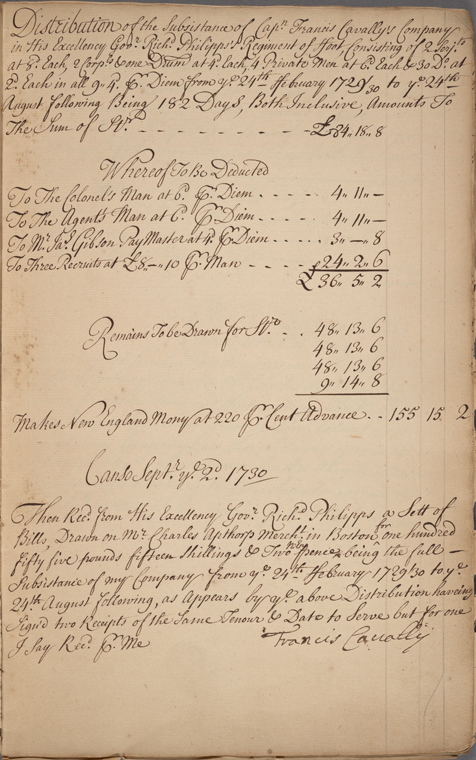 Distribution of the Subsistance of Capn. Francis Cavallys Company
in His Excellency Govr. Richd. Philipps's Regiment of ffoot Consisting of 2 Serjts.
at 6d. Each, 2 Corpls. & one Drum at 4d. Each, 4 Private Men at 6d. Each & 30 Do. at
2d. Each in all 9„ 4 ⅌ Diem from ye. 24th ffebruary 1729/30 to ye. 24th
August following Being 182 Days, Both Inclusive, Amounts To
The Sum of Str. - - - - - - - - - £84„ 18„ 8
Whereof To Be Deducted
To The Colonel's Man at 6d. ⅌ Diem - - - - 4„ 11„ —
To The Agent's Man at 6d. ⅌ Diem - - - - 4„ 11„ —
To Mr. Jas. Gibson Pay Master at 4d. ⅌ Diem - - - - 3„ — „ 8
To Three Recruits at £8„ — „ 10 ⅌ Man - - - - £24„ 2„ 6
£36„ 5„ 2
Remains To be Drawn for Str. - - 48„ 13„ 6
48„ 13„ 6
48„ 13„ 6
9„ 14„ 8
Makes New England Mony at 220 ⅌ Cent Advance - - 155 15„ 2
Canso Septr. ye. 2d. 1730
Then Recd. from His Excellency Govr. Richd. Philipps a Sett of
Bills, Drawn on Mr. Charles Apthorp Mercht. in Boston for one hundred
fifty five pounds fifteen Shillings & Two pence being the full —
Subsistance of my Company from ye. 24th ffebruary 1729/30 to ye.
24th August following, as Appears by ye. above Distribution haveing
Sign'd two Receipts of the Same Tenour & Date to Serve but for one
I Say Recd. ⅌ Me Francis Cavally